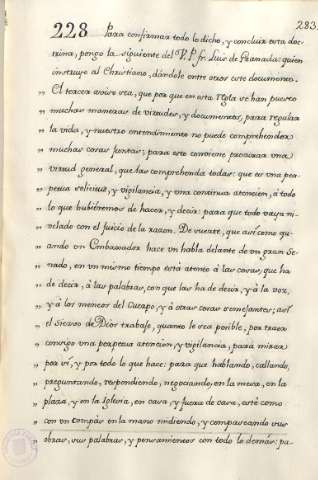 283.
228 Para confirmar todo lo dicho, y concluir esta doc-
trina, pongo la siguiente del V. P. fr. Luis de Granada: quien
instruye al Christiano, dándole entre otros este documento.
El tercer aviso sea, que por que en esta regla se han puesto
„ muchas maneras de virtudes, y documentos, para reglar
„ la vida, y nuestro entendimiento no puede comprehender
„ muchas cosas juntas; para esto conviene procurar una
„ virtud general, que las comprehenda todas: que es una per-
„ petua solicitud, y vigilancia, y una continua atencion, á todo
„ lo que hubieremos de hacer, y decir: para que todo vaya ni-
„ velado con el juicio de la razon. De suerte, que así como qu-
„ ando un Embaxador hace un habla delante de un gran Se-
„ nado, en un mismo tiempo está atento á las cosas, que ha
„ de decir, á las palabras, con que las ha de decir, y á la voz,
„ y á los meneos del cuerpo, y á otras cosas semejantes; así
„ el siervo de Dios trabaje, quanto le sea posible, por traer
„ consigo una perpetua atencion, y vigilancia, para mirar
„ por sí, y por todo lo que hace: para que hablando, callando,
„ preguntando, respondiendo, negociando, en la mesa, en la
„ plaza, y en la Iglesia, en casa, y fuera de casa, esté como
„ con un compás en la mano midiendo, y compasando sus
„ obras, sus palabras, y pensamientos con todo lo demás: pa-